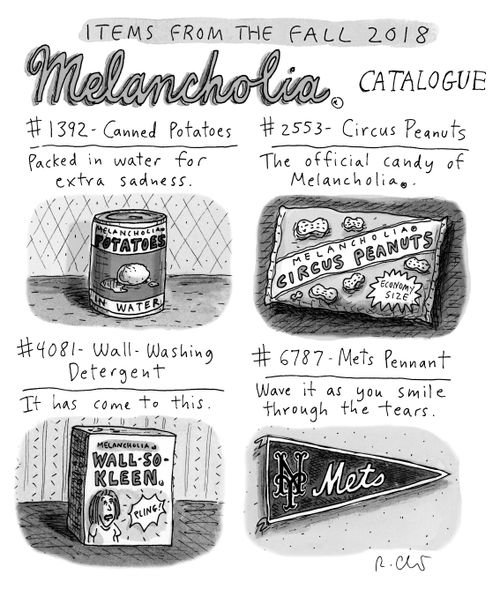 ITEMS FROM THE FALL 2018
Melancholia© CATALOGUE
#1392- Canned Potatoes
Packed in water for
extra sadness.
MELANCHOLIA®
POTATOES
IN WATER
#2553- Circus Peanuts
The official candy of
Melancholia®.
MELANCHOLIA®
CIRCUS PEANUTS
ECONOMY
SIZE
#4081- Wall-Washing
Detergent
It has come to this.
MELANCHOLIA®
WALL-SO-
KLEEN®
PLING!
# 6787- Mets Pennant
Wave it as you smile
through the tears.
NY Mets
R. Ch